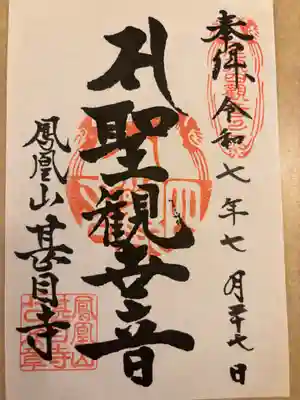 奉拝 令和七年七月二十七日
聖観世音
鳳凰山 甚目寺
鳳凰山
甚目寺